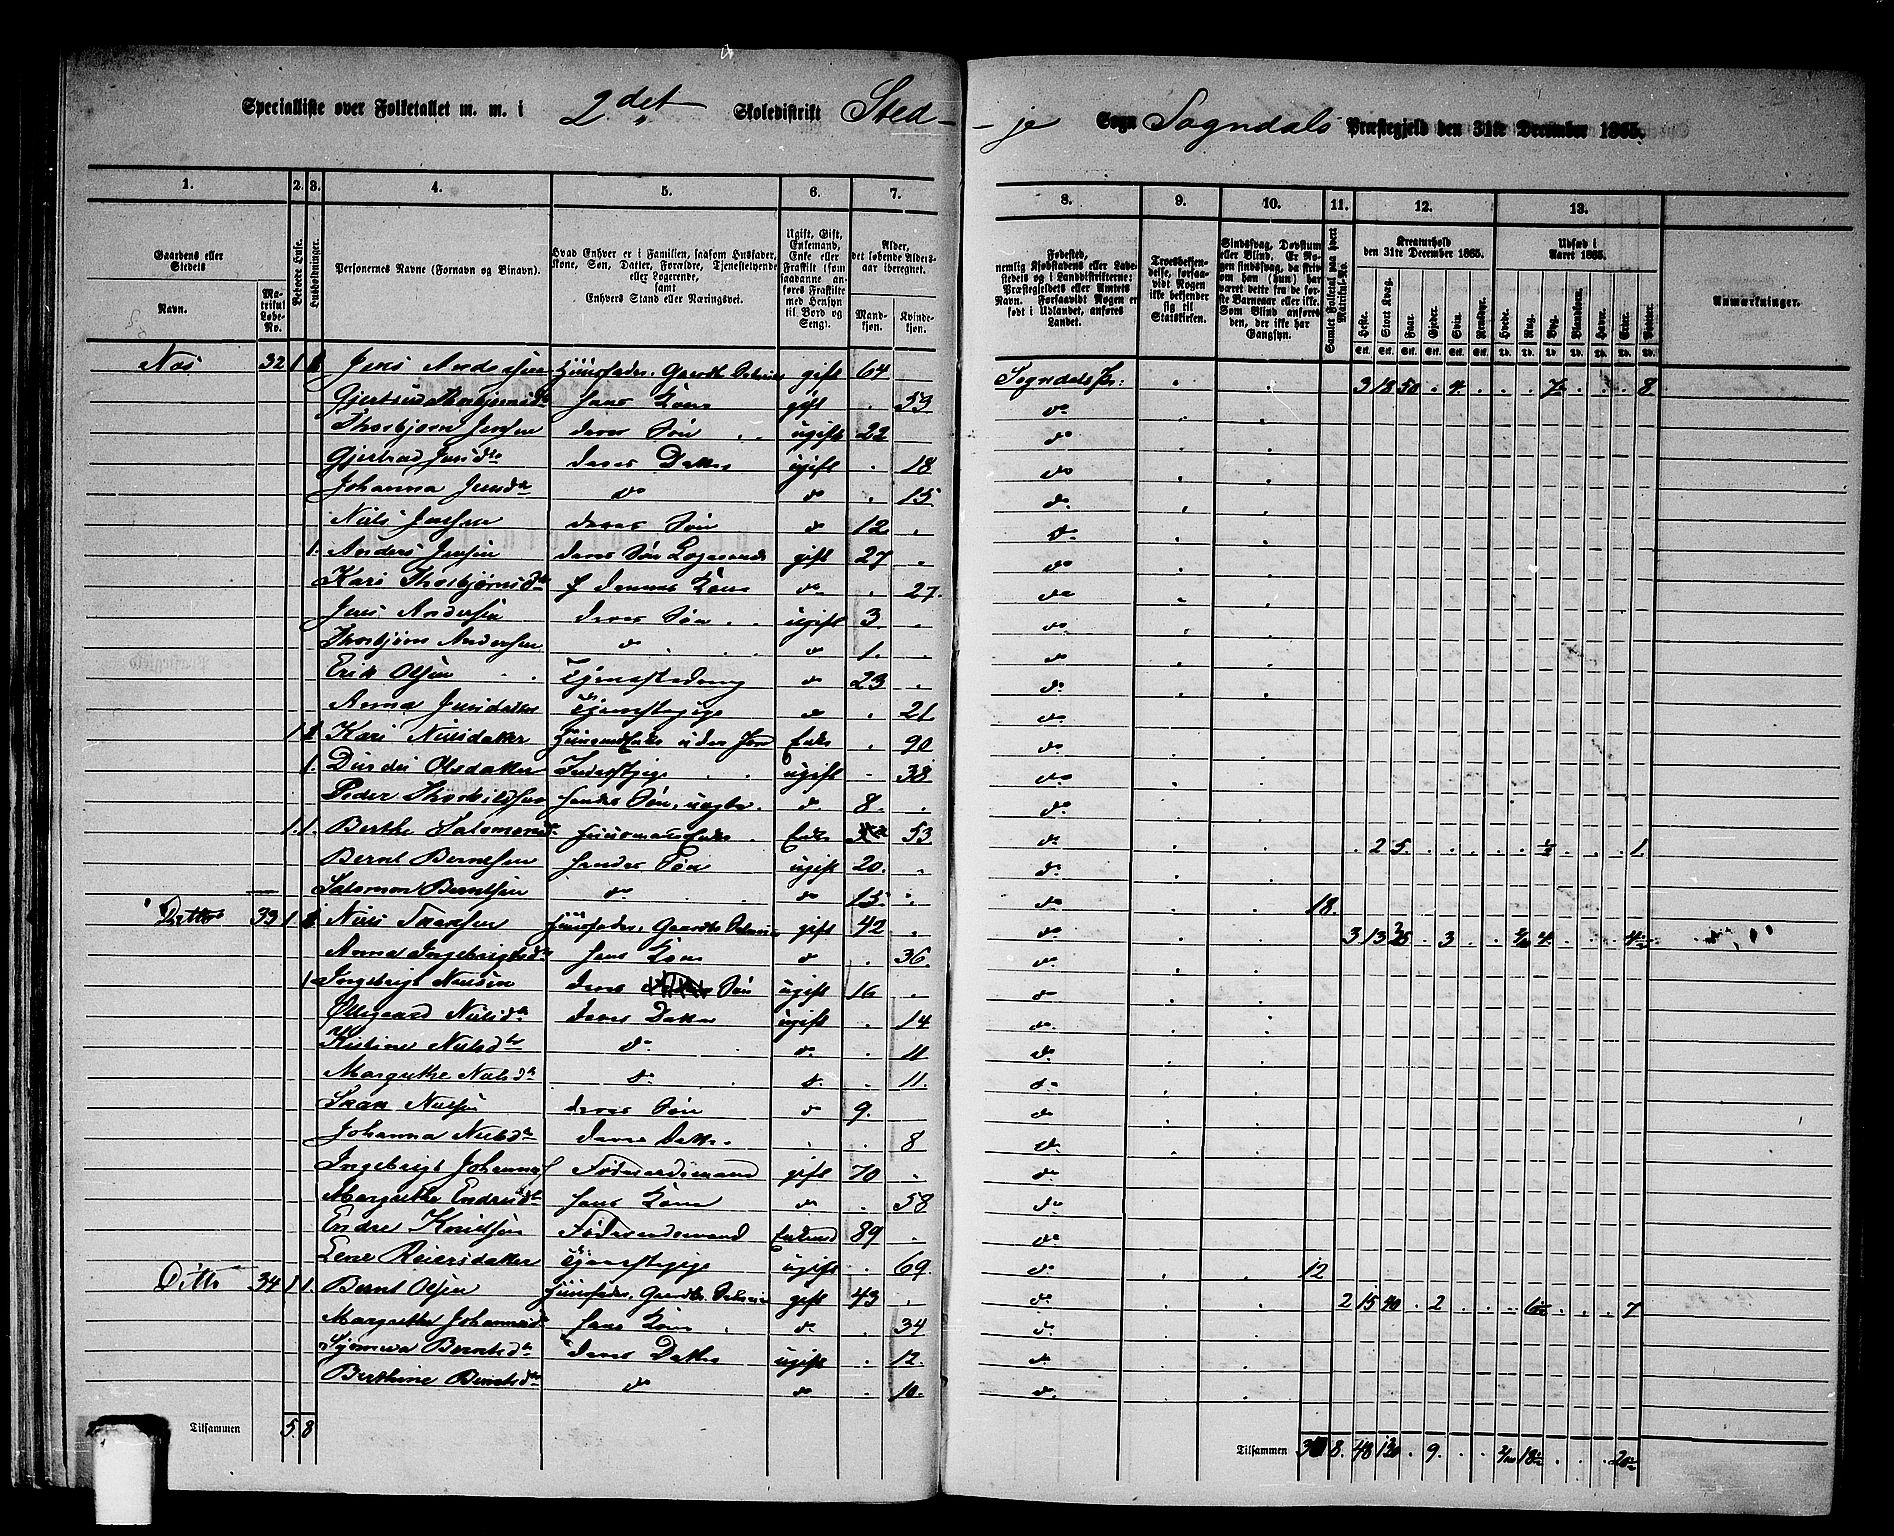 Specialliste over Folketallet m. m. i 2det Skoledistrikt Sted-
-je Sogn Sogndals Præstegjeld den 31te December 1865.
1. 2. 3. 4. 5. 6. 7.
8. 9. 10. 11. 12. 13.
Gaardens eller Stedets
Navn.
Matrikul Løbe-No.
Beboede Huse.
Husholdninger.
Personernes Navne (Fornavn og Binavn).
Hvad Enhver er i Familien, saasom Husfader, Kone, Søn, Datter, Forældre, Tjenestetyende eller Logerende, samt Enhvers Stand eller Næringsvei.
Ugift, Gift, Enkemand, Enke eller Fraskilt (som saadanne anføres Fraskilte med Hensyn til Bord og Seng).
Alder, det løbende Alders-aar iberegnet.
Mandkjøn. Kvindekjøn.
Fødested, nemlig Kjøbstadens eller Ladestedets og i Landdistrikterne: Præstegjeldets eller Amtets Navn. Forsaavidt Nogen er født i Udlandet, anføres Landet.
Troesbekjendelse, forsaavidt Nogen ikke bekjender sig til Statskirken.
Sindssvag, Døvstum eller Blind. Er Nogen sindssvag, da skrives om han (hun) har været dette fra de første Barneaar eller ikke. Som Blind anføres den, der ikke har Gangsyn.
Samlet Folketal paa hvert Matrikul-No.
Kreaturhold den 31te December 1865.
Heste. Stort Kvæg. Faar. Gjeder. Svin. Rensdyr.
Udsæd i Aaret 1865.
Hvede. Rug. Byg. Blandkorn. Havre. Erter. Poteter.
Anmærkninger.
32 1 Jens Andersen gift 64 Sogndals Pr: 3 18 50 . 4 . . . 7 . . . 8
hans Kone gift . 53 do
Thorbjørn Jensen deres Søn ugift 22 do
Gjertrud Jensdtr deres Datter ugift . 18 do
Johanna Jensdtr do do . 15 do
Niels Jensen deres Søn do 12 . do
1. Anders Jensen deres Søn Logerende gift 27 . do
Kari Thorbjørnsdtr dennes Kone do . 27. do
Jens Andersen deres Søn ugift 3 . do
Thorbjørn Andersen do do 1. . do
Erik Olsen Tjenestedreng do 23 . do
Anna Jensdatter Tjenestepige do . 21 do
1 Kari Nielsdatter Enke . 90 do
1. Olsdatter ugift - 38 do
Peder hendes Søn, do 8. . do
1. 1. Berthe Salomonsdtr Husmandsenke Enke 53 do . 2 5. . . . . . ½ . . . 1.
Bernt Berntsen hendes Søn ugift 20. . do
Salomon Berntsen do do 15 . do 18.
Ditto 33 1. Niels gift 42 . do 3 13 25 . 3 . . 4. . . .
Anna Ingebrigtsdtr hans Kone do . 36. do
1 Ingebrigt Nielsen deres Søn ugift 16 . do
Nielsdtr deres Datter ugift . 14 do
Nielsdtr do do . 11 do
Margrethe Nielsdtr do do . 11. do
Nielsen deres Søn do 9. do
Johanna Nielsdtr deres Datter . . 8 do
Ingebrigt Føderaadsmand gift 70 . do
Margrethe Endresdtr hans Kone do . 58 do
Endre Knudsen Føderaadsmand Enkemd 89 . do
Lene Reiersdatter Tjenestepige ugift . 69. do 12
Ditto 34 1 1. Bernt Olsen gift 43 . do 2 15 40 . 2 . . . . . . 7
Margrethe Johannesdtr hans Kone do . 34 do
Berntsdtr deres Datter ugift . 12. do
Berthine Berntsdtr do do . 10. do
Tilsammen 5. 8
Tilsammen 8. 48 . 9. . .